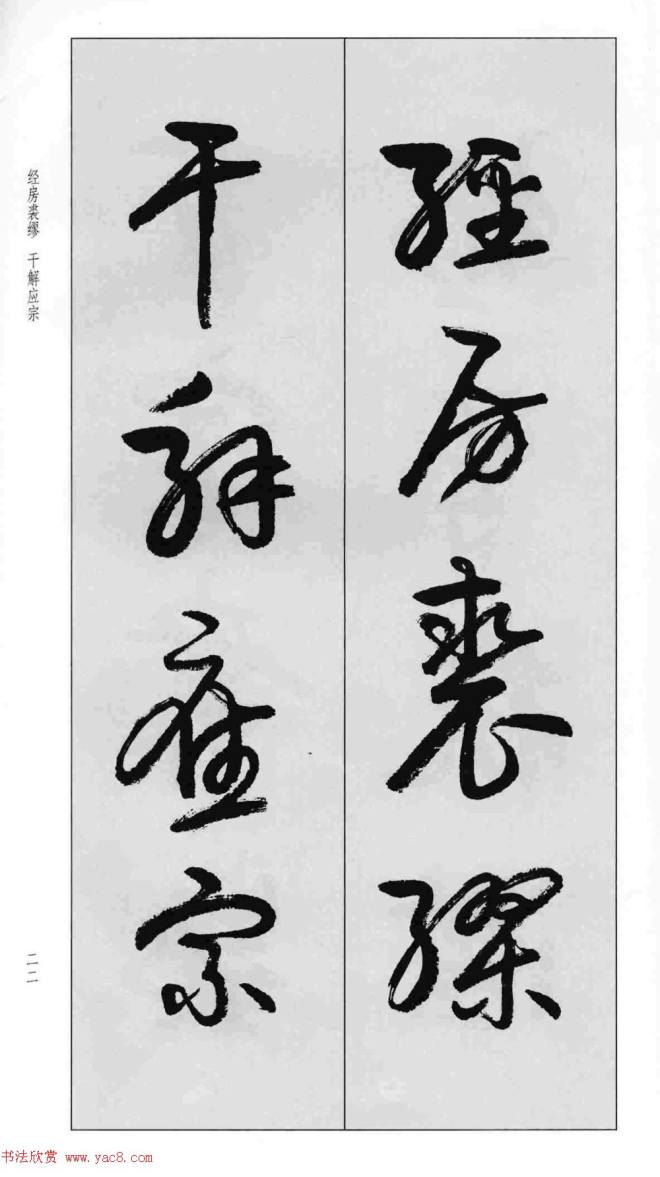 經房裘繆
干解應宗
经房裘缪 干解应宗
二二
书法欣赏 www.yac8.com